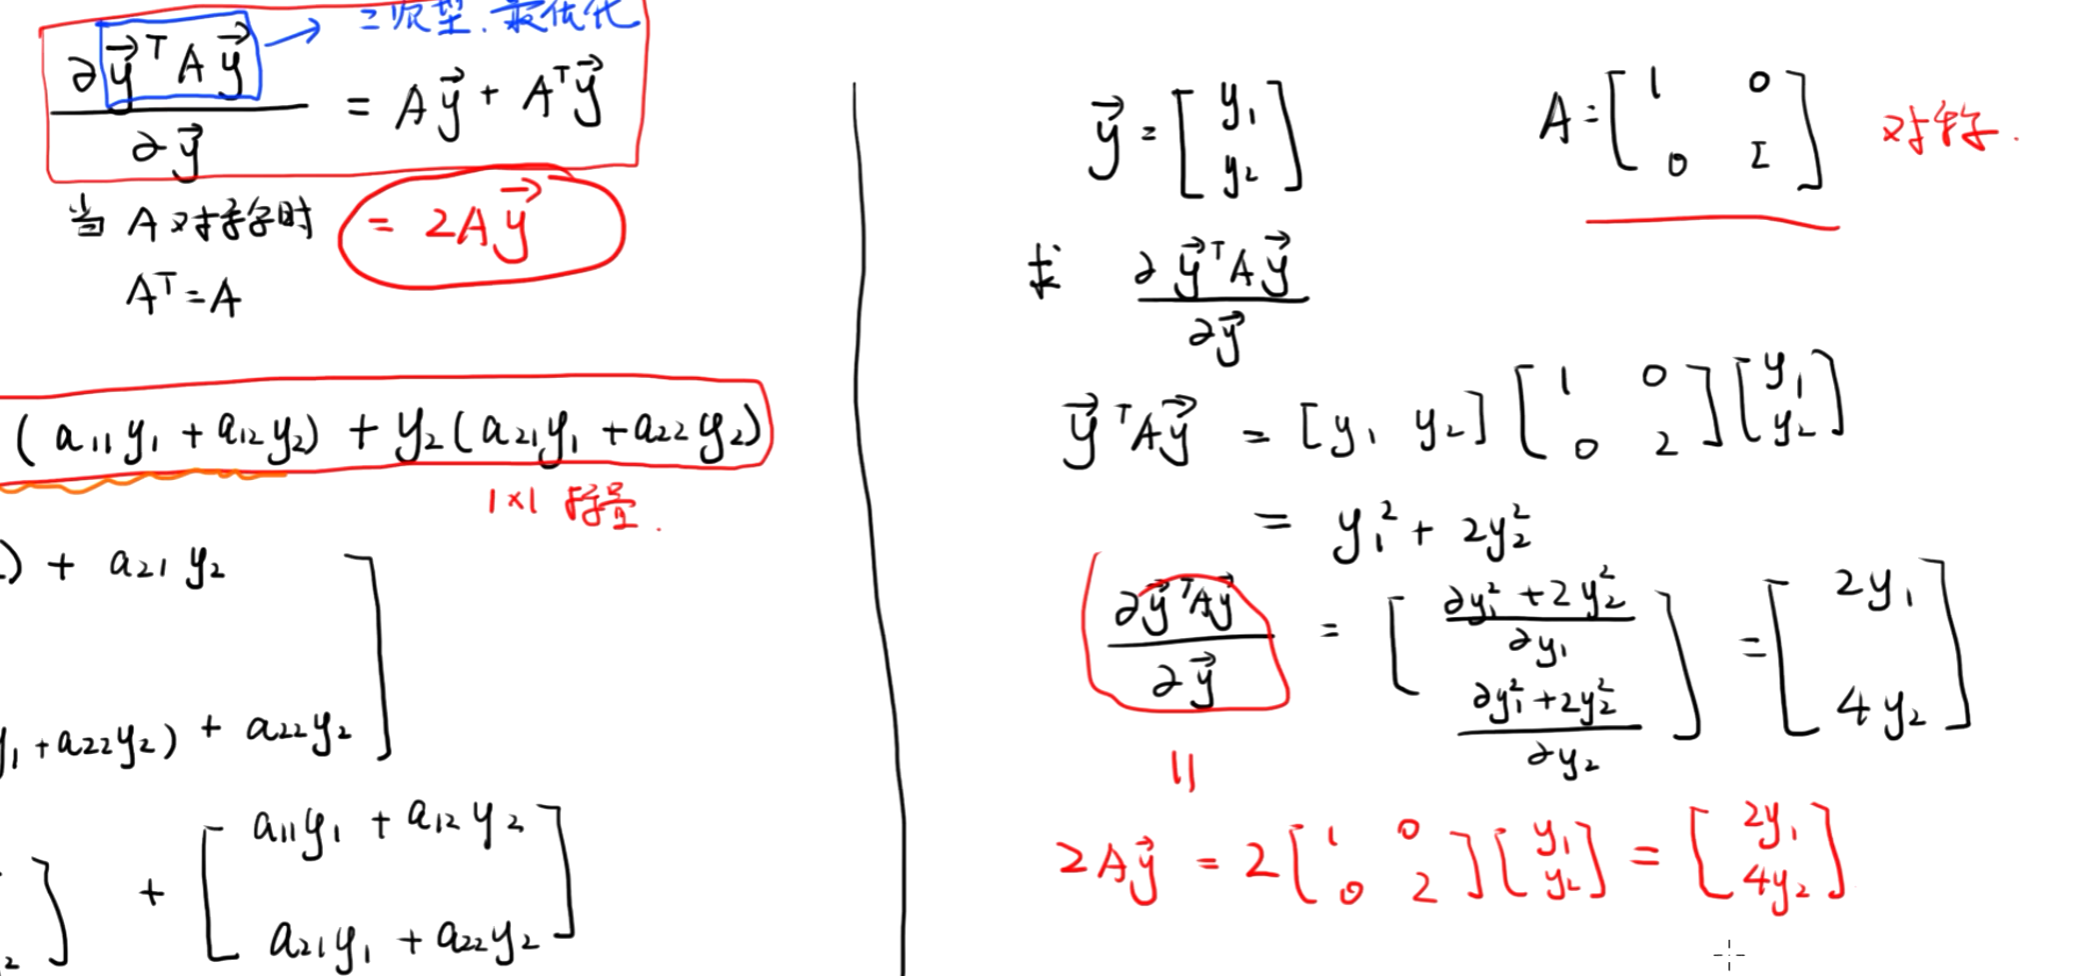 ∂y⃗ᵀAy⃗ / ∂y⃗ = Ay⃗ + Aᵀy⃗
→ 二次型. 最优化
当 A 对称时 = 2Ay⃗
Aᵀ = A
( a₁₁y₁ + a₁₂y₂) + y₂(a₂₁y₁ + a₂₂y₂)
1×1 标量.
) + a₂₁y₂ ]
y₁ + a₂₂y₂) + a₂₂y₂ ]
] + [ a₁₁y₁ + a₁₂y₂
a₂₁y₁ + a₂₂y₂ ]
y⃗ = [ y₁
y₂ ]
A = [ 1 0
0 2 ]
对称.
求 ∂y⃗ᵀAy⃗ / ∂y⃗
y⃗ᵀAy⃗ = [y₁ y₂] [ 1 0 ; 0 2 ] [ y₁ ; y₂ ]
= y₁² + 2y₂²
∂y⃗ᵀAy⃗ / ∂y⃗ = [ ∂y₁² + 2y₂² / ∂y₁ ; ∂y₁² + 2y₂² / ∂y₂ ] = [ 2y₁ ; 4y₂ ]
||
2Ay⃗ = 2 [ 1 0 ; 0 2 ] [ y₁ ; y₂ ] = [ 2y₁ ; 4y₂ ]